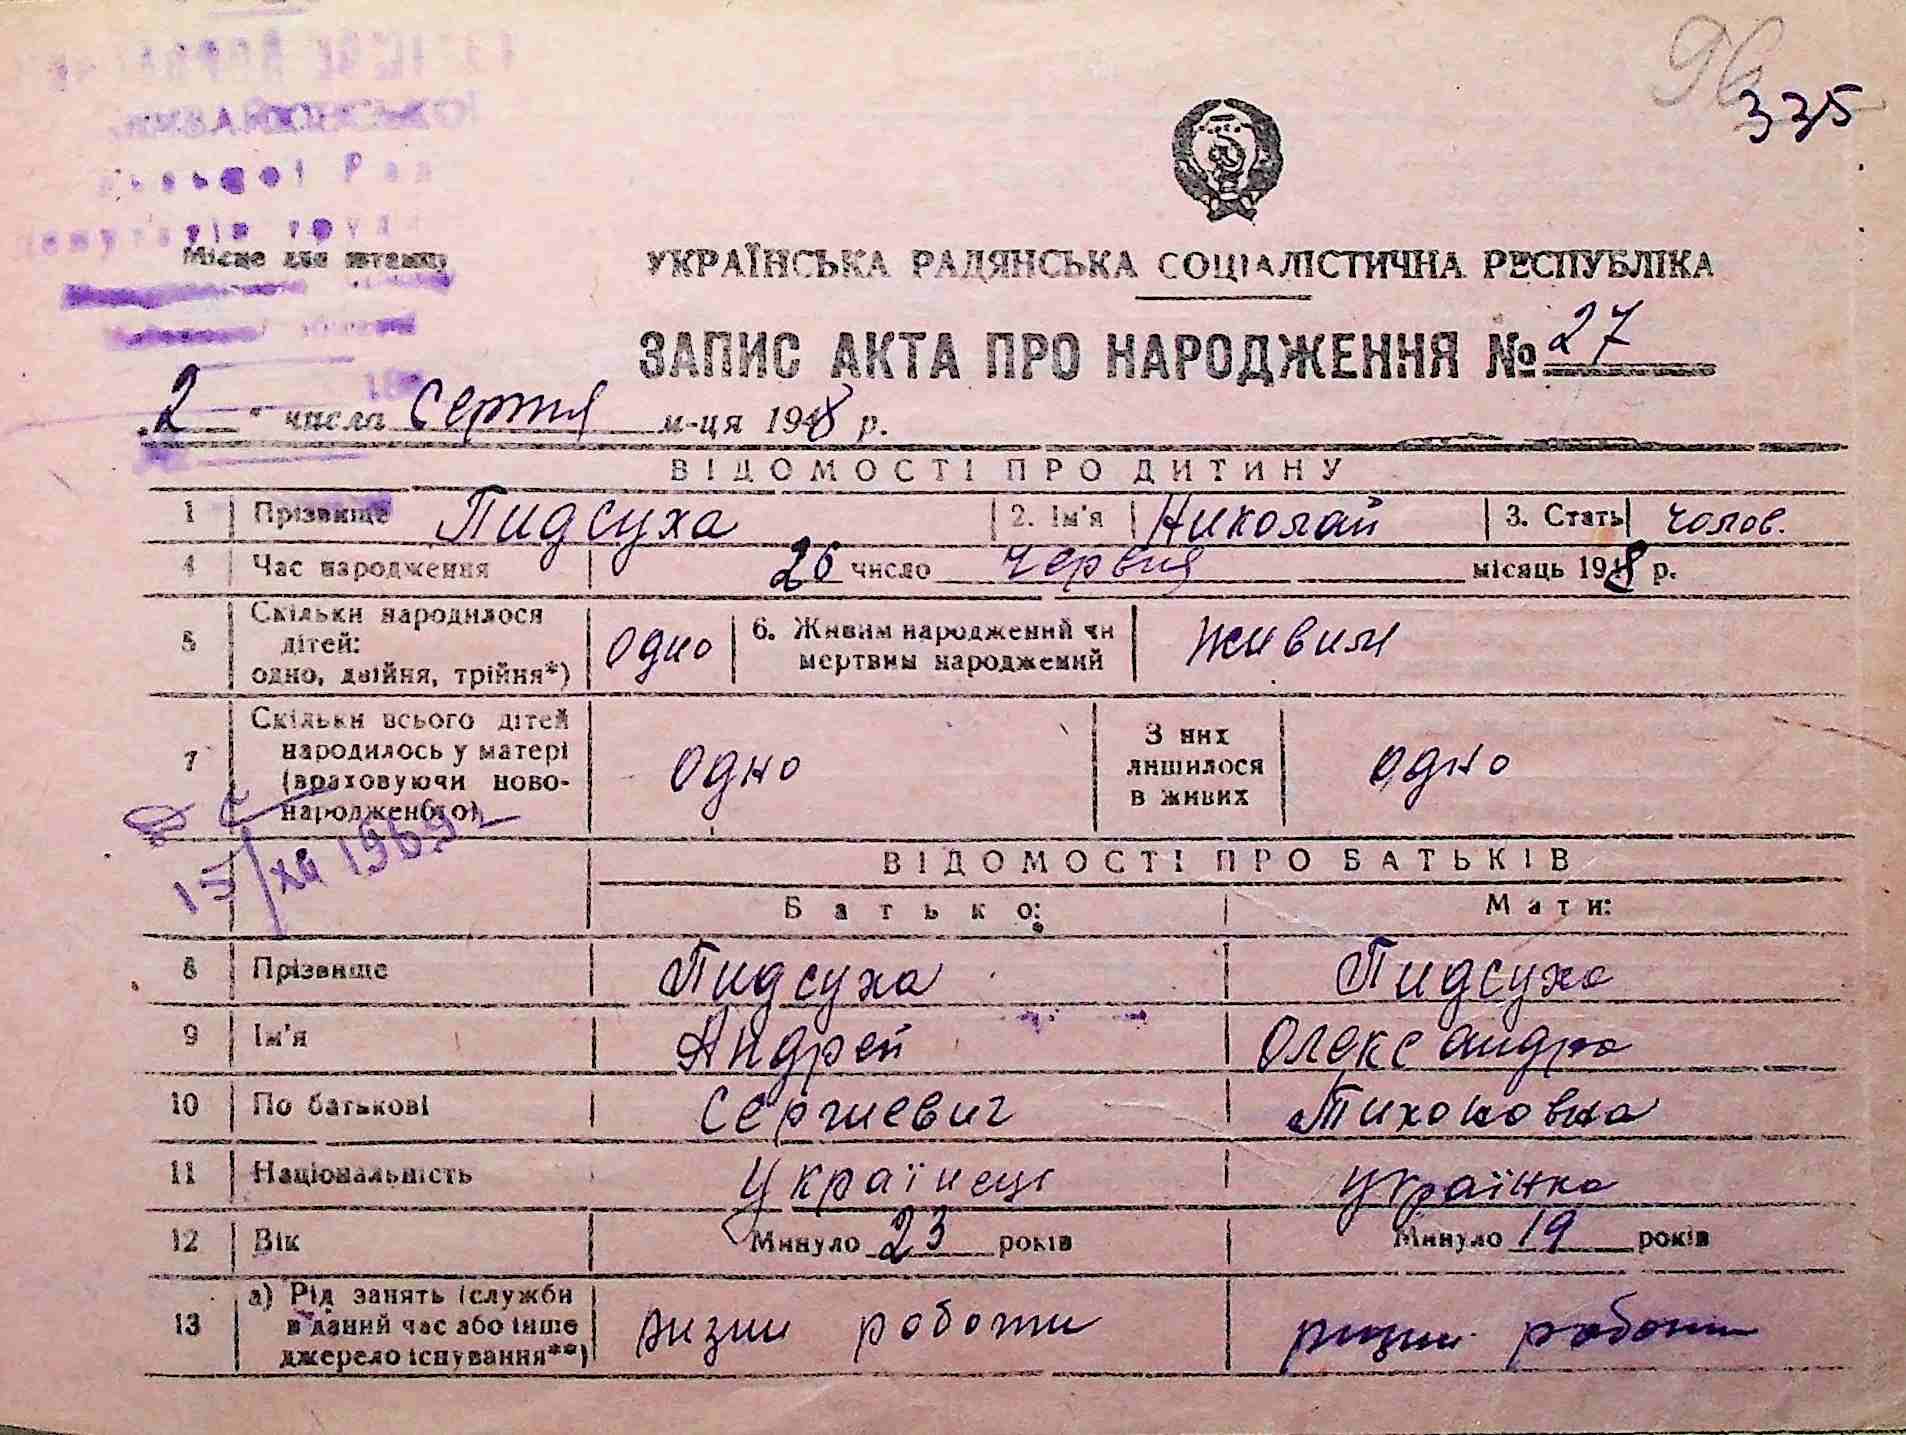 96
335
Місце для штампу
УКРАЇНСЬКА РАДЯНСЬКА СОЦІАЛІСТИЧНА РЕСПУБЛІКА
ЗАПИС АКТА ПРО НАРОДЖЕННЯ № 27
"2" числа серпня м-ця 1948 р.
ВІДОМОСТІ ПРО ДИТИНУ
1 Прізвище Пидсуха 2. Ім'я Николай 3. Стать чолов.
4 Час народження 26 число червня місяць 1948 р.
5 Скільки народилося дітей: одно, двійня, трійня*) одно 6. Живим народжений чи мертвим народжений живим
7 Скільки всього дітей народилось у матері (враховуючи новонародженого) одно З них лишилося в живих одно
15/XII 1969
ВІДОМОСТІ ПРО БАТЬКІВ
Батько: Мати:
8 Прізвище Пидсуха Пидсуха
9 Ім'я Андрей Олександра
10 По батькові Сергиевич Тихоновна
11 Національність українець українка
12 Вік Минуло 23 років Минуло 19 років
13 а) Рід занять (служби в даний час або інше джерело існування**) ризни роботи ризни роботи